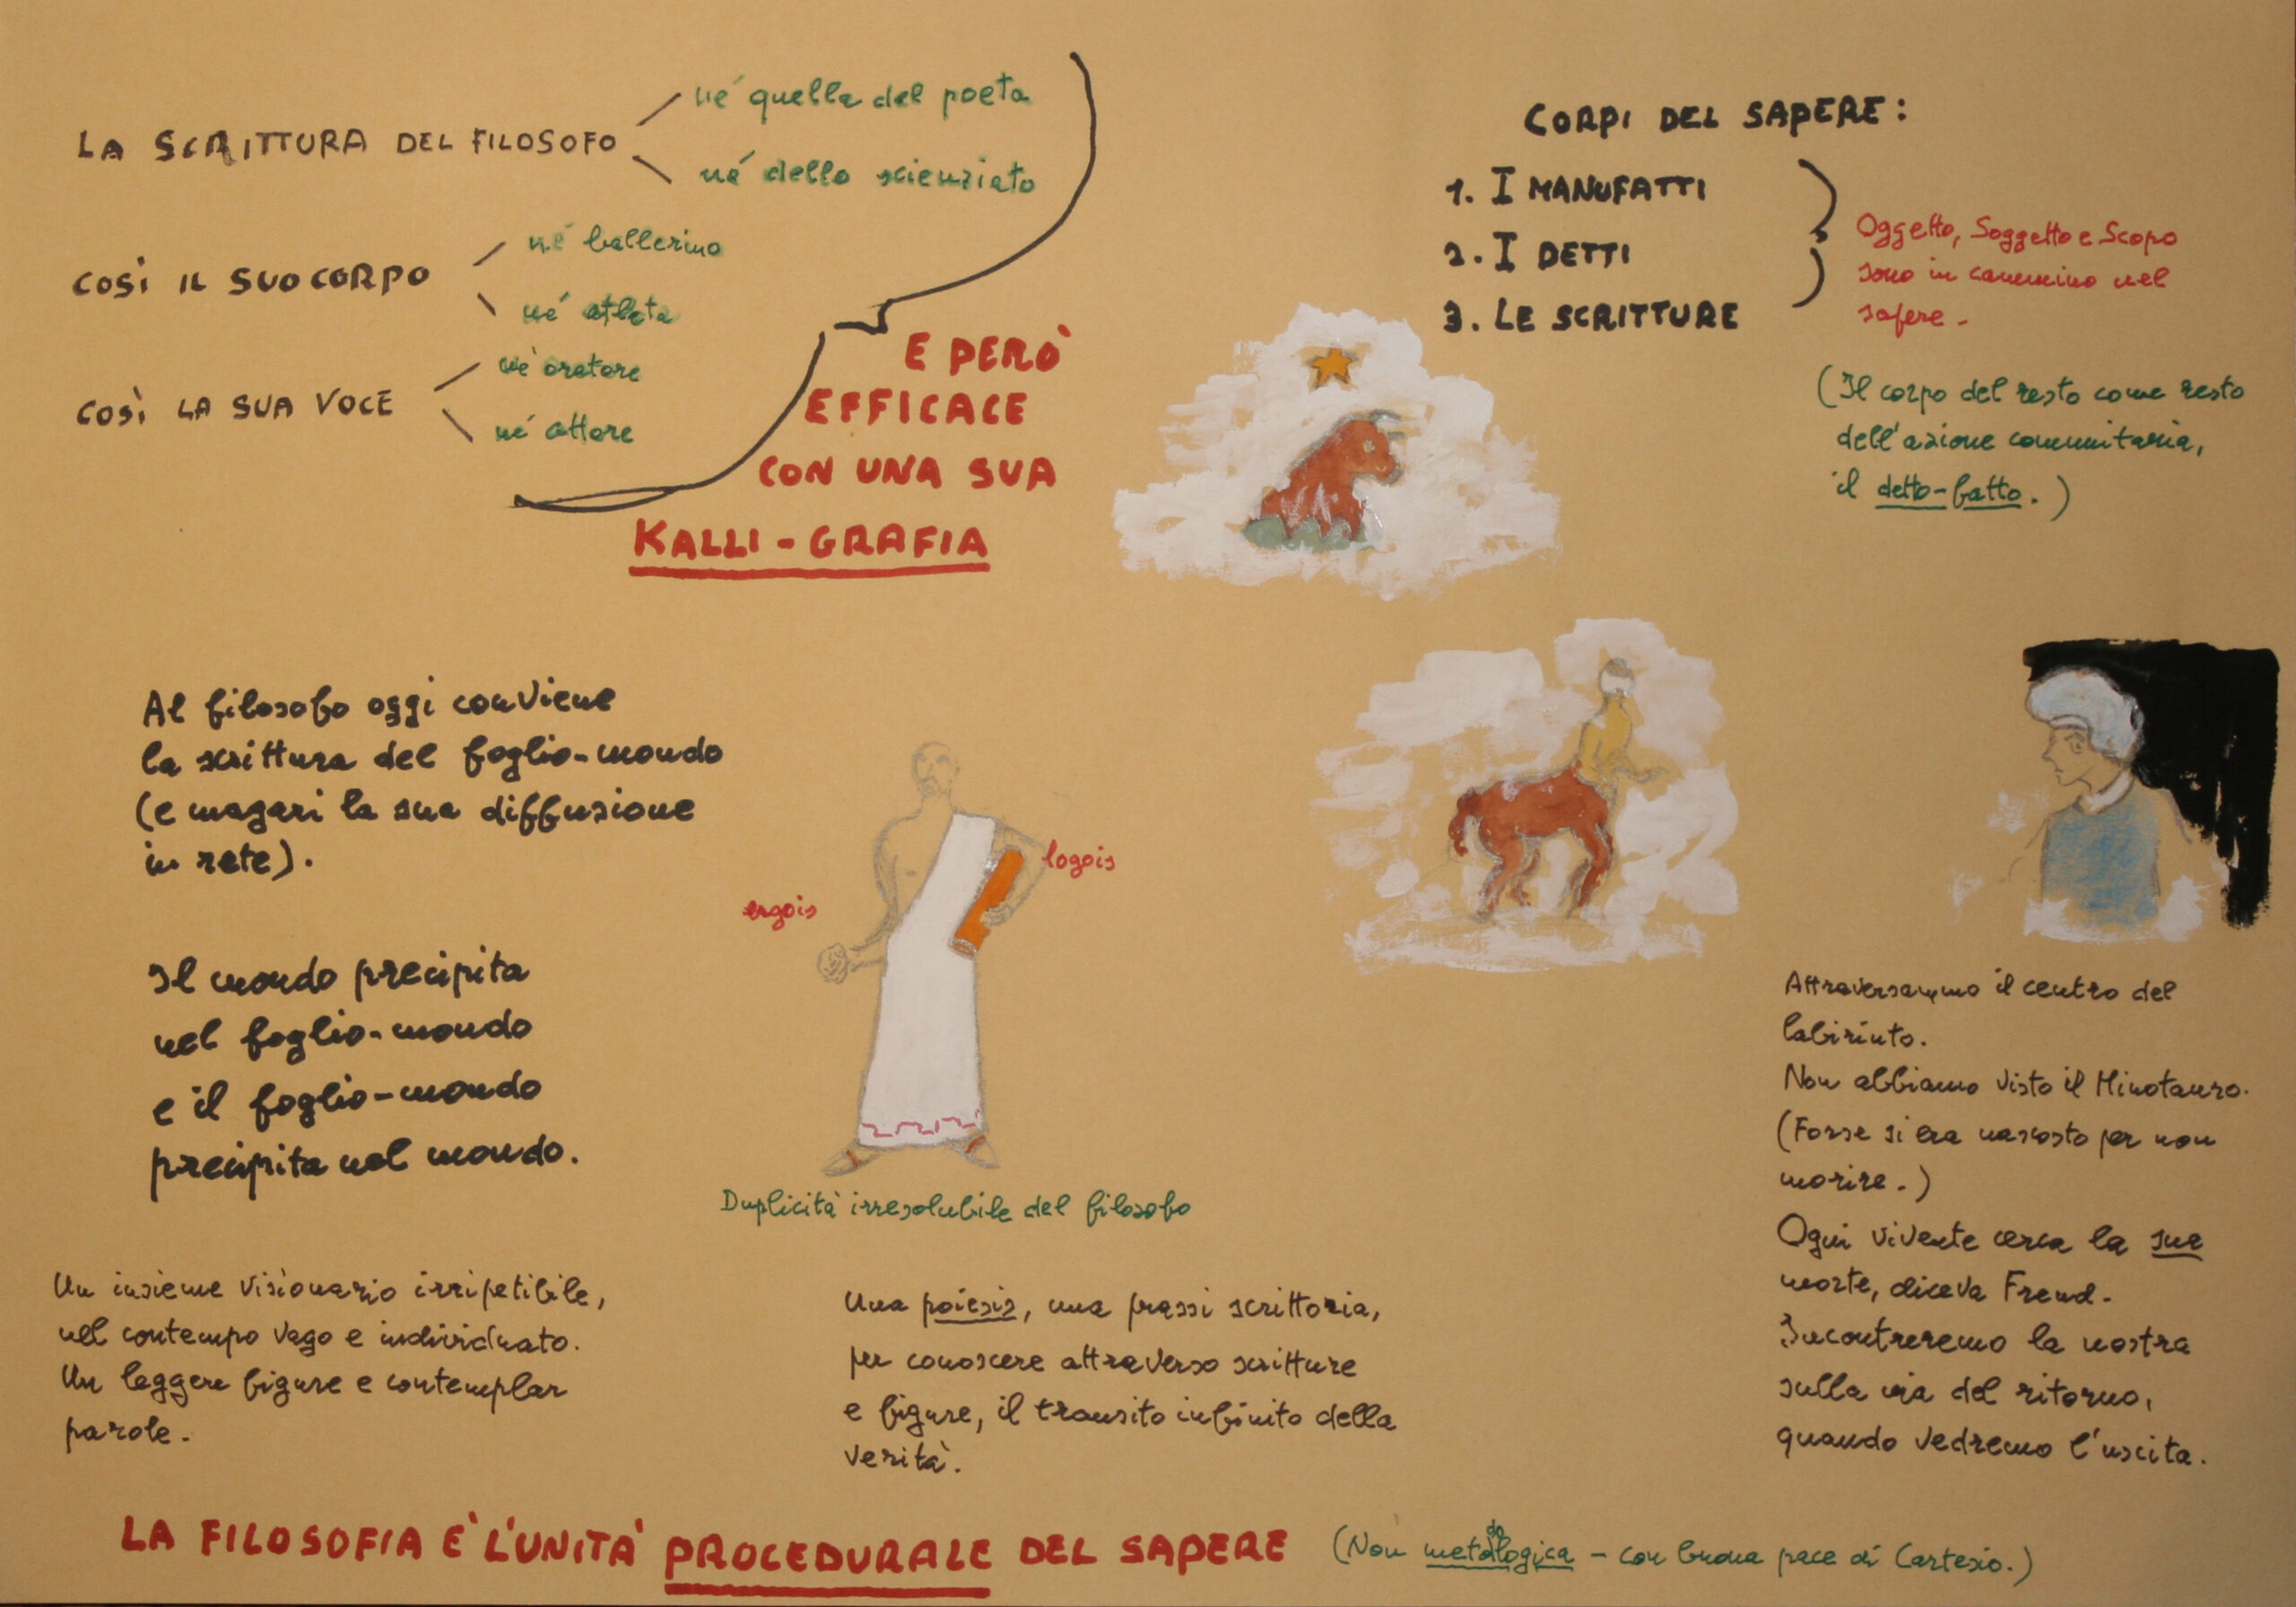 LA SCRITTURA DEL FILOSOFO
né quella del poeta
né dello scienziato
COSÌ IL SUO CORPO
né ballerino
né atleta
COSÌ LA SUA VOCE
né oratore
né attore
E PERÒ
EFFICACE
CON UNA SUA
KALLI-GRAFIA
CORPI DEL SAPERE:
1. I MANUFATTI
2. I DETTI
3. LE SCRITTURE
Oggetto, Soggetto e Scopo
sono in cammino nel
sapere.
(Il corpo del resto come resto
dell'azione comunitaria,
il detto-fatto.)
Al filosofo oggi conviene
la scrittura del foglio-mondo
(e magari la sua diffusione
in rete).
Il mondo precipita
nel foglio-mondo
e il foglio-mondo
precipita nel mondo.
ergois
logois
Duplicità irresolubile del filosofo
Un insieme visionario irripetibile,
nel contempo vago e individuato.
Un leggere figure e contemplar
parole.
Una poiesis, una prassi scrittoria,
per conoscere attraverso scritture
e figure, il transito infinito della
verità.
Attraversammo il centro del
labirinto.
Non abbiamo visto il Minotauro.
(Forse si era nascosto per non
morire.)
Ogni vivente cerca la sua
morte, diceva Freud.
Incontreremo la nostra
sulla via del ritorno,
quando vedremo l'uscita.
LA FILOSOFIA È L'UNITÀ PROCEDURALE DEL SAPERE
(Non metodologica - con buona pace di Cartesio.)